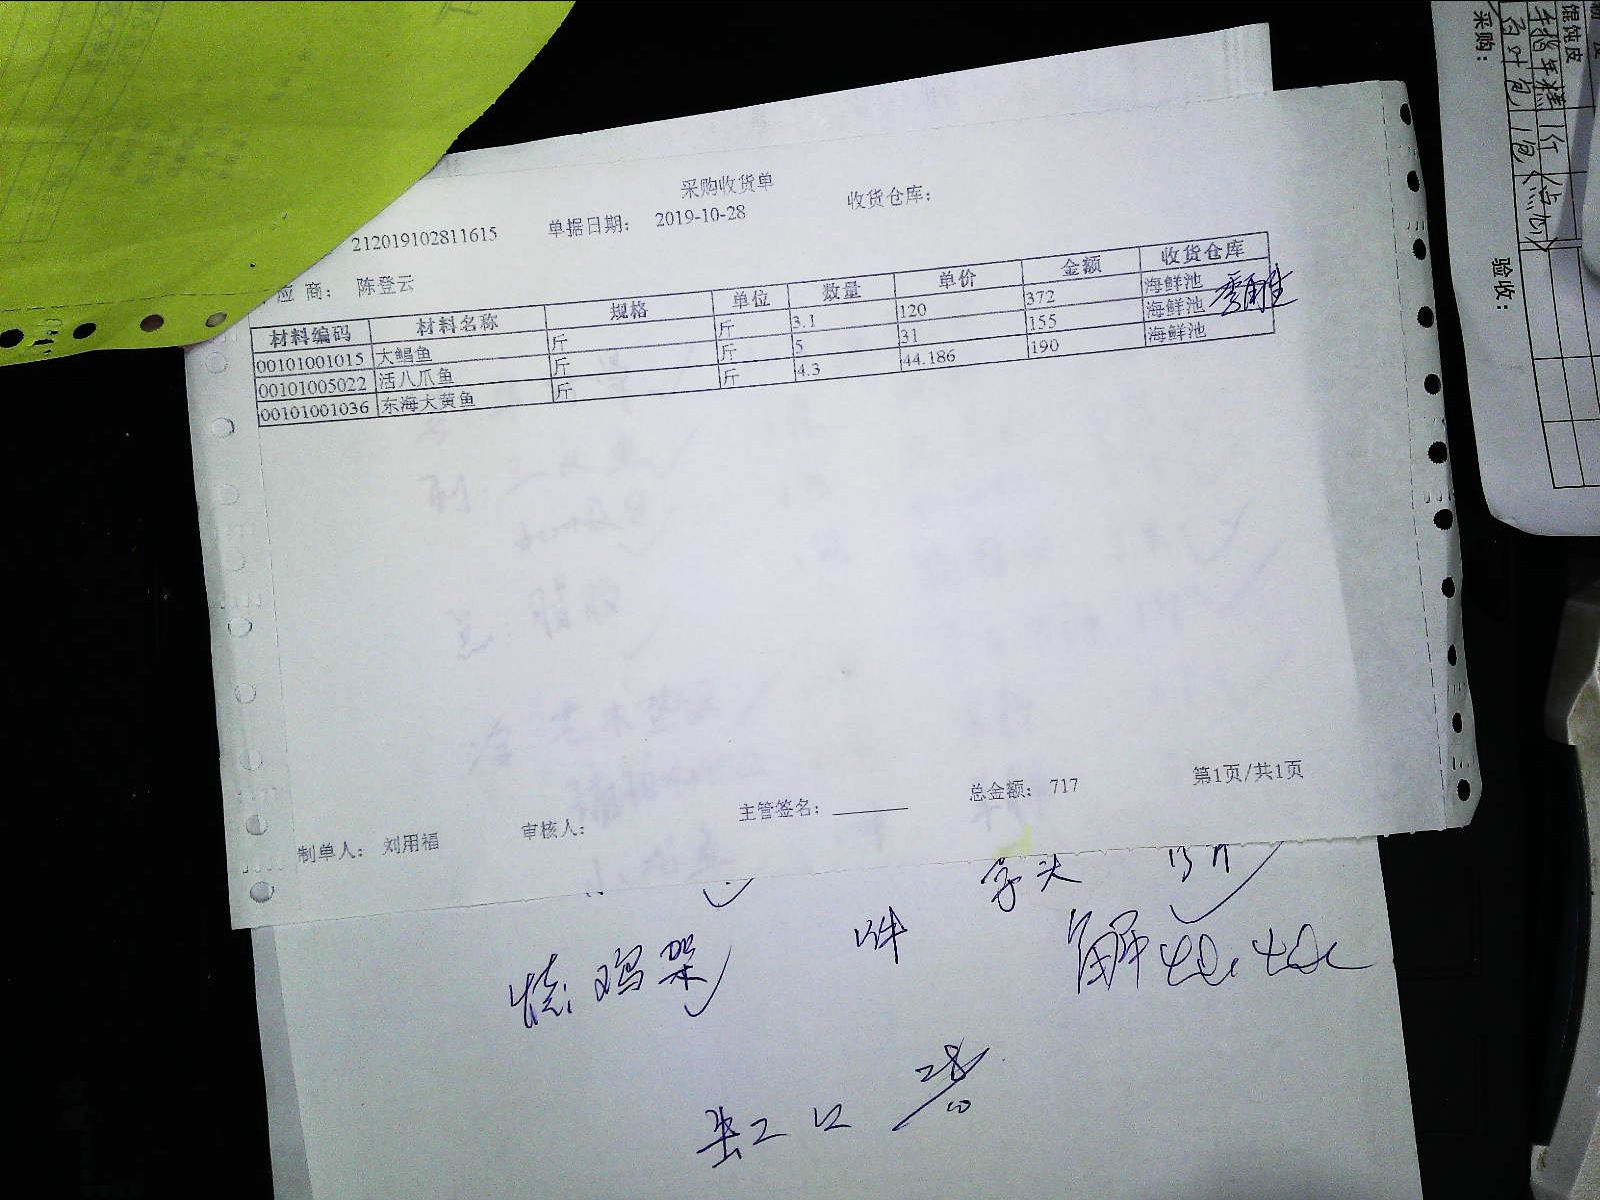 采购收货单
212019102811615 单据日期： 2019-10-28 收货仓库：
应 商： 陈登云
材料编码 材料名称 规格 单位 数量 单价 金额 收货仓库
00101001015 大鲳鱼 斤 斤 3.1 120 372 海鲜池
00101005022 活八爪鱼 斤 斤 5 31 155 海鲜池
00101001036 东海大黄鱼 斤 斤 4.3 44.186 190 海鲜池
制单人： 刘用福 审核人： 主管签名： 总金额： 717 第1页/共1页
鸡架
虹口 28/10
馄饨皮
手指年糕 1斤
百叶包 1包
采购：
验收：